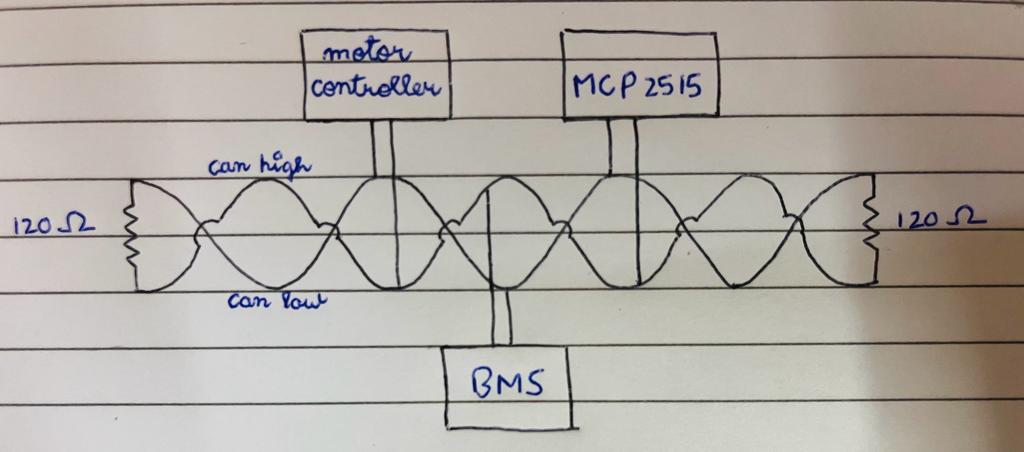 motor
controller
MCP2515
can high
120 Ω
120 Ω
can low
BMS